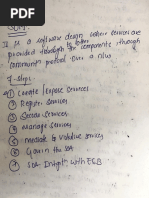 SOA
It is a software design where services are
provided to other by components through
communicatn protocol over a n/w
7-steps
① Create / Expose services
② Register services
③ Secure services
④ Manage services
⑤ Mediate & Virtulise services
⑥ Govern the SOA
⑦ SOA Integratn with ESB